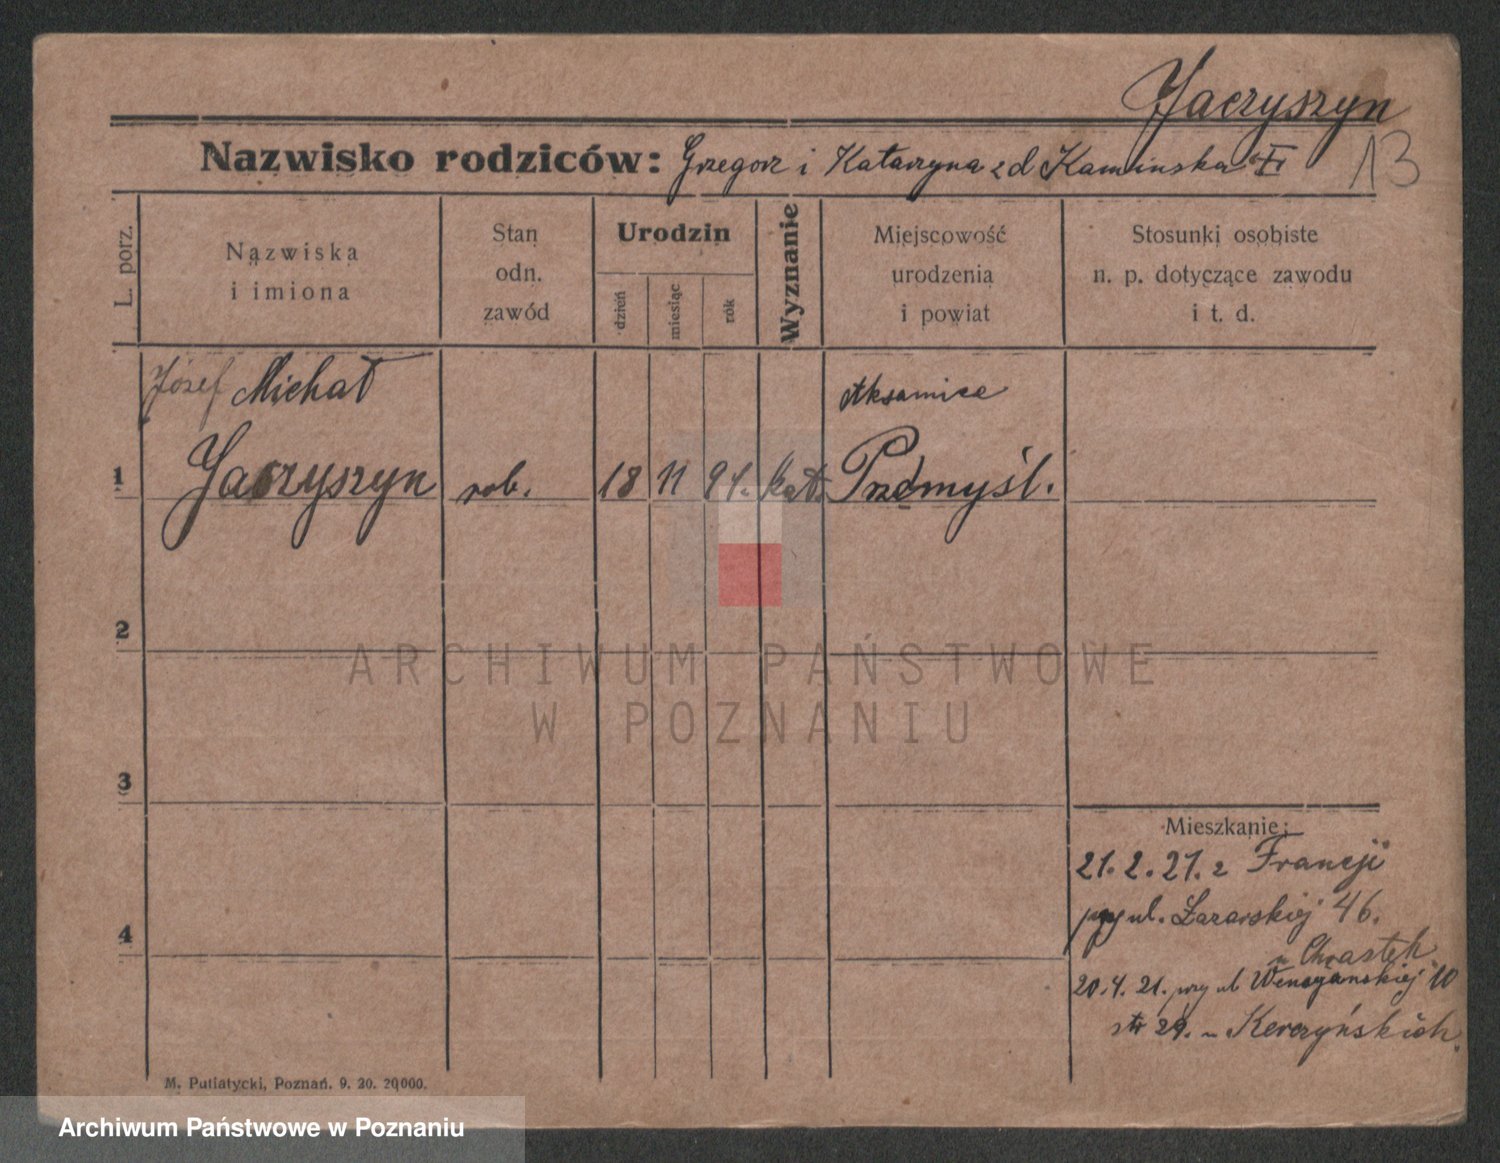 Jaczyszyn
Nazwisko rodziców: Grzegorz i Katarzyna z d Kamińska
13
L. porz.
Nazwiska
i imiona
Stan
odn.
zawód
Urodzin
dzień
miesiąc
rok
Wyznanie
Miejscowość
urodzenia
i powiat
Stosunki osobiste
n. p. dotyczące zawodu
i t. d.
Józef Michał
Aksamice
1 Jaczyszyn rob. 18 11 91. kat. Przemyśl.
2
ARCHIWUM PAŃSTWOWE
W POZNANIU
3
Mieszkanie:
21. 2. 21. z Francji
przy ul. Łazarskiej 46.
u Chwastek
4
20. 4. 21. przy ul Wenecjańskiej 10
29. u
M. Putiatycki, Poznań. 9. 20. 20000.
Archiwum Państwowe w Poznaniu